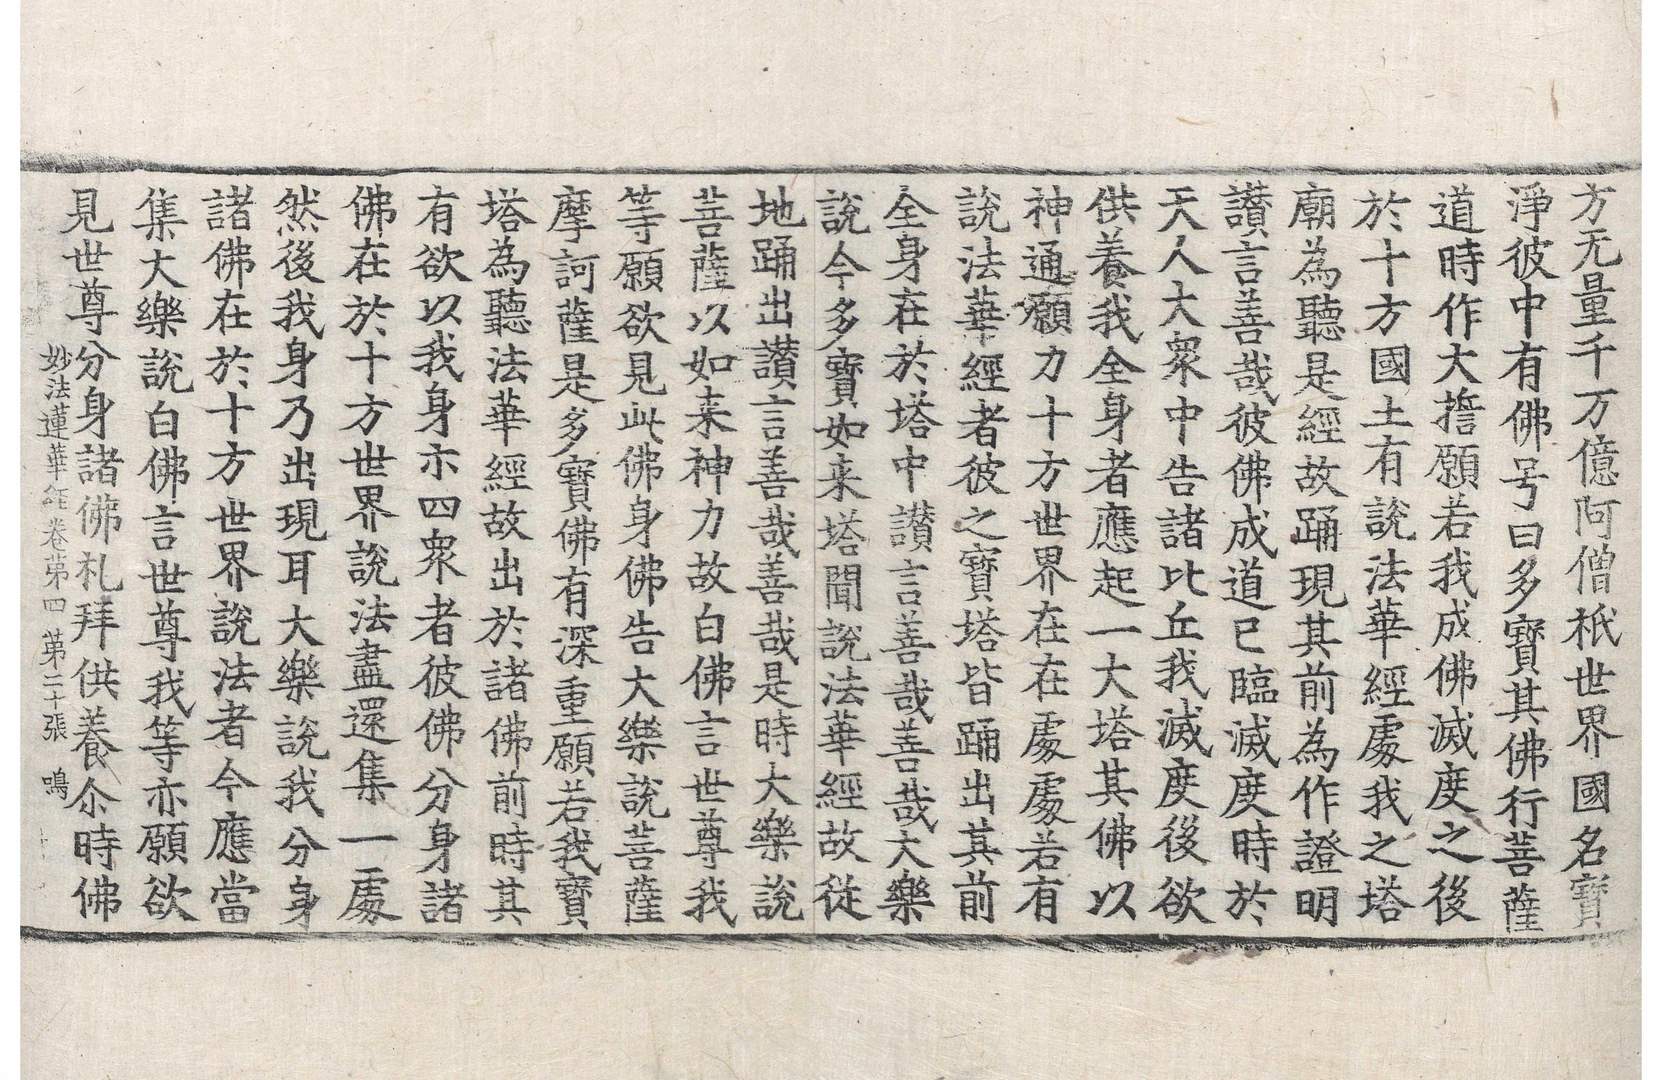 方无量千万億阿僧祇世界國名寶
淨彼中有佛号曰多寶其佛行菩薩
道時作大擔願若我成佛滅度之後
於十方國土有說法華經處我之塔
廟為聽是經故踊現其前為作證明
讚言善哉彼佛成道已臨滅度時於
天人大衆中告諸比丘我滅度後欲
供養我全身者應起一大塔其佛以
神通願力十方世界在在處處若有
說法華經者彼之寶塔皆踊出其前
全身在於塔中讚言善哉善哉大樂
說今多寶如来塔聞說法華經故從
地踊出讚言善哉善哉是時大樂說
菩薩以如来神力故白佛言世尊我
等願欲見此佛身佛告大樂說菩薩
摩訶薩是多寶佛有深重願若我寶
塔為聽法華經故出於諸佛前時其
有欲以我身示四衆者彼佛分身諸
佛在於十方世界說法盡還集一處
然後我身乃出現耳大樂說我分身
諸佛在於十方世界說法者今應當
集大樂說白佛言世尊我等亦願欲
見世尊分身諸佛礼拜供養尒時佛
妙法蓮華經卷第四 第二十張 鳴